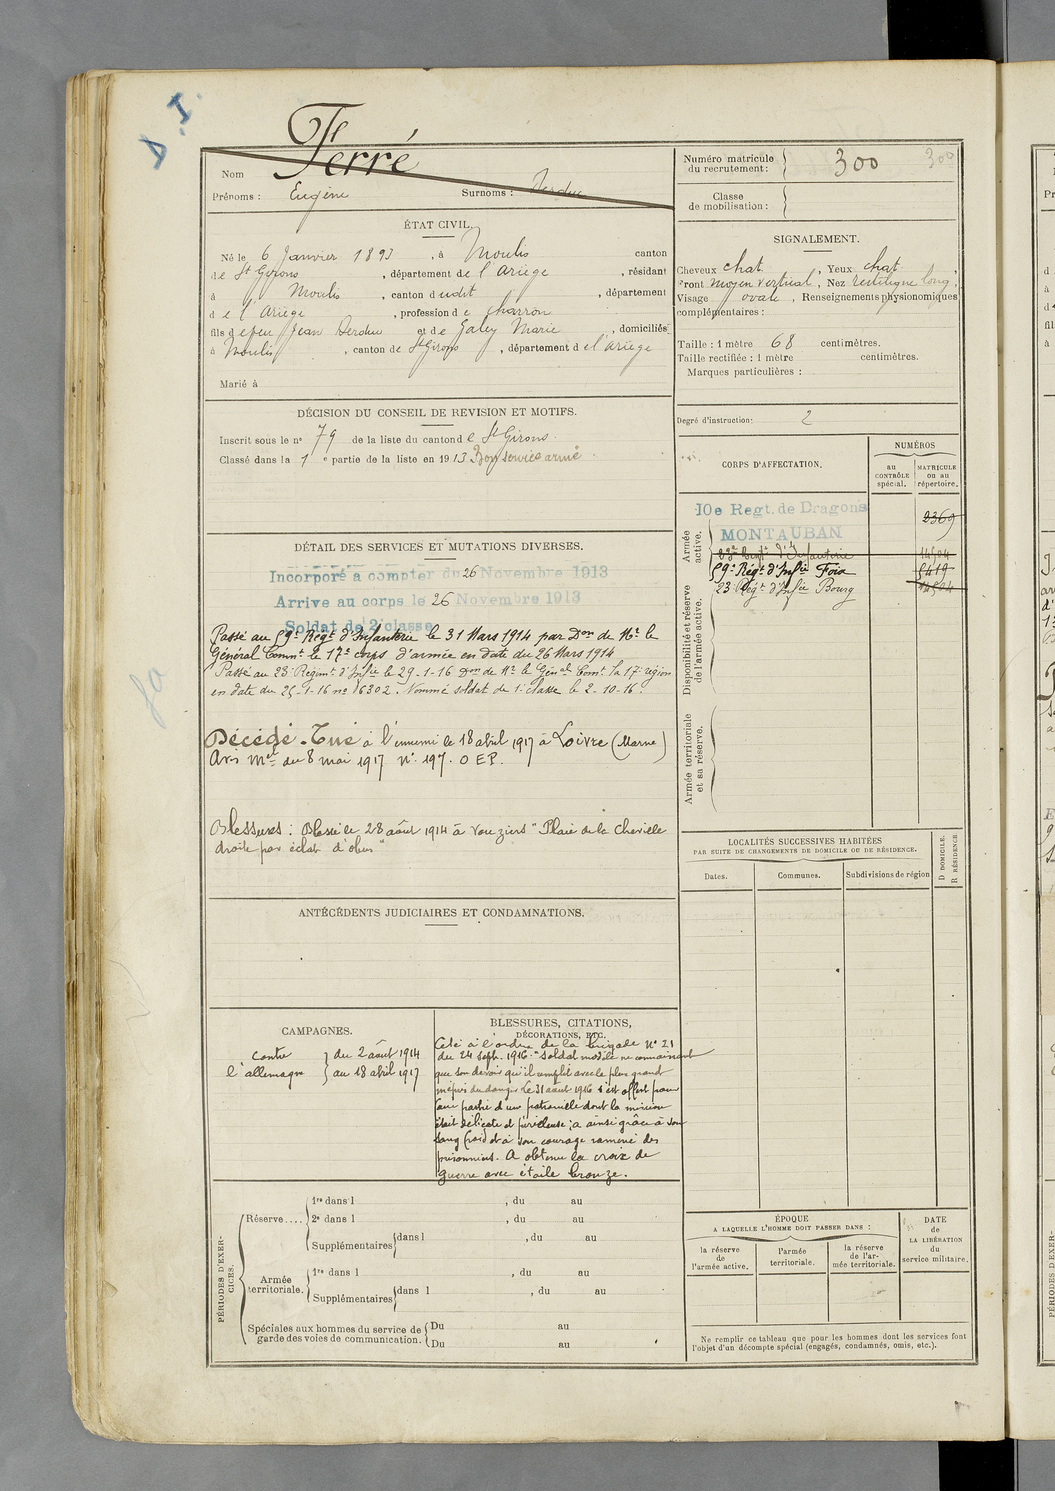 D.I.
Ferré
Nom
Prénoms : Eugène Surnoms : Derduc
Numéro matricule
du recrutement : 300 300
Classe
de mobilisation :
ÉTAT CIVIL.
Né le 6 Janvier 1893, à Moulis canton
de St Girons, département de l'Ariège, résidant
à Moulis, canton dudit, département
de l'Ariège, profession de charron
fils de feu Jean Derduc et de Galey Marie, domiciliés
à Moulis, canton de St Girons, département de l'Ariège
Marié à
SIGNALEMENT.
Cheveux chat. , Yeux chat. ,
Front moyen vertical, Nez rectiligne long,
Visage ovale, Renseignements physionomiques
complémentaires :
Taille : 1 mètre 68 centimètres.
Taille rectifiée : 1 mètre centimètres.
Marques particulières :
Degré d'instruction : 2
DÉCISION DU CONSEIL DE REVISION ET MOTIFS.
Inscrit sous le n° 79 de la liste du canton de St Girons.
Classé dans la 1e partie de la liste en 1913 Bon service armé.
DÉTAIL DES SERVICES ET MUTATIONS DIVERSES.
Incorporé à compter du 26 Novembre 1913
Arrivé au corps le 26 Novembre 1913
Soldat de 2e classe
Passé au 59e Régt d'Infanterie le 31 Mars 1914 par Don de Mr le
Général Commt le 17e corps d'armée en date du 26 Mars 1914
Passé au 23e Regimt d'Infie le 29-1-16 Don de Mr le Génal Comt la 17e région
en date du 25-1-16 no 16302. Nommé soldat de 1e classe le 2-10-16.
Décédé - Tué à l'ennemi le 18 abril 1917 à Loivre (Marne)
Avis Mel du 8 mai 1917 N° 197. O E P.
Blessures : Blessé le 28 août 1914 à Vouziers "Plaie de la cheville
droite par éclat d'obus"
CORPS D'AFFECTATION.
NUMÉROS
au
CONTRÔLE
spécial.
MATRICULE
ou au
répertoire.
Armée
active.
10e Regt. de Dragons 2369
MONTAUBAN
23e Regt d'Infanterie 14504
59e Régt d'Infie Foix 5419
23 Régt d'Infie Bourg 14504
Disponibilité et réserve
de l'armée active.
Armée territoriale
et sa réserve.
LOCALITÉS SUCCESSIVES HABITÉES
PAR SUITE DE CHANGEMENTS DE DOMICILE OU DE RÉSIDENCE.
Dates. Communes. Subdivisions de région
D DOMICILE.
R RÉSIDENCE
ANTÉCÉDENTS JUDICIAIRES ET CONDAMNATIONS.
CAMPAGNES.
Contre
l'allemagne
du 2 août 1914
au 18 abril 1917
BLESSURES, CITATIONS,
DÉCORATIONS, ETC.
Cité à l'ordre de la brigade N° 21
du 24 sept. 1916. "Soldat modèle ne connaissant
que son devoir qu'il remplit avec le plus grand
mépris du danger. Le 31 août 1916 s'est offert pour
faire partie d'une patrouille dont la mission
était délicate et périlleuse ; a ainsi grâce à son
sang froid et à son courage ramené des
prisonniers. A obtenu la croix de
guerre avec étoile bronze.
PÉRIODES D'EXER-
CICES.
Réserve....
1re dans l , du au
2e dans l , du au
Supplémentaires dans l , du au
Armée
territoriale.
1re dans l , du au
Supplémentaires dans l , du au
Spéciales aux hommes du service de
garde des voies de communication.
Du au
Du au
ÉPOQUE
A LAQUELLE L'HOMME DOIT PASSER DANS :
la réserve
de
l'armée active.
l'armée
territoriale.
la réserve
de l'ar-
mée territoriale.
DATE
de
LA LIBÉRATION
du
service militaire.
Ne remplir ce tableau que pour les hommes dont les services font
l'objet d'un décompte spécial (engagés, condamnés, omis, etc.).